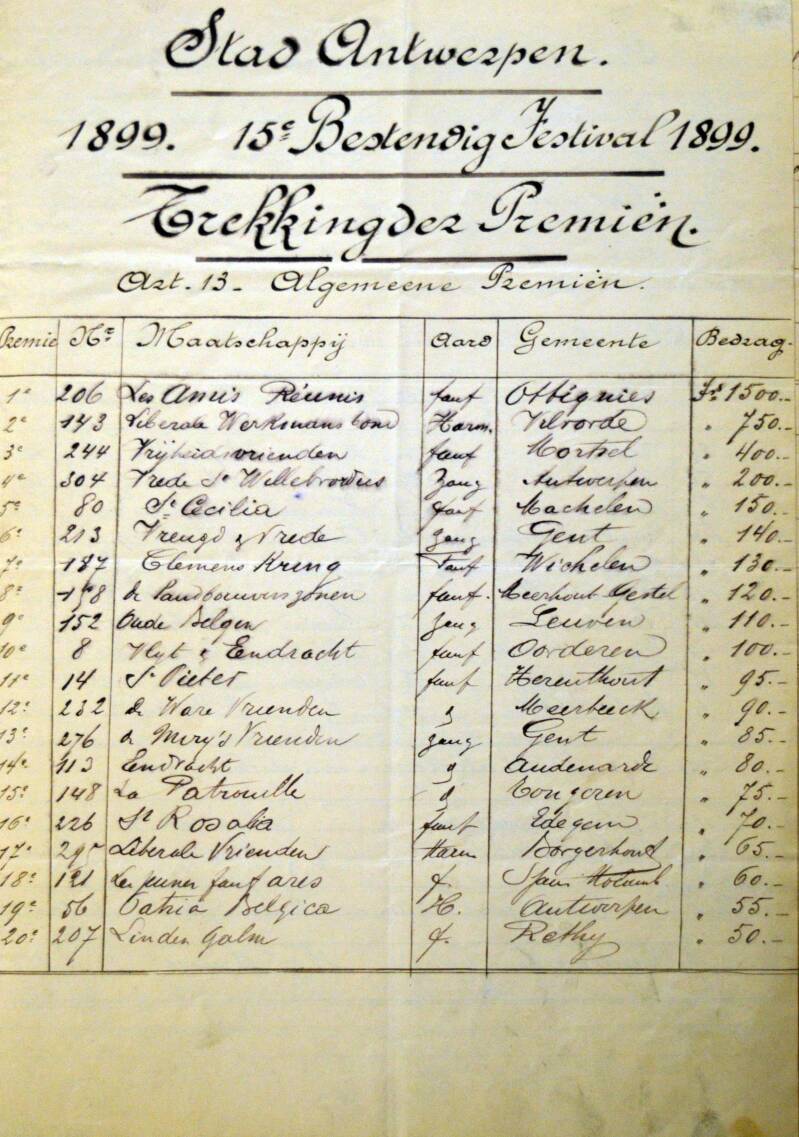 Stad Antwerpen.
1899. 15e Bestendig Festival 1899.
Trekking der Premiën.
Art. 13. Algemeene Premiën.
Premie Nr Maatschappij Aard Gemeente Bedrag.
1e 206 Les Amis Réunis fanf Ottignies Fr 1500.-
2e 143 Liberale Werkmansbond Harm. Vilvorde " 750.-
3e 244 Vrijheidsvrienden fanf Mortsel " 400.-
4e 304 Vrede St Willebrordus Zang Antwerpen " 200.-
5e 80 St Cecilia fanf Machelen " 150.-
6e 213 Vreugd & Vrede Zang Gent " 140.-
7e 187 Clemens Kring Fanf Wichelen " 130.-
8e de Landbouwerszonen fanf. Meerhout Gestel " 120.-
9e 152 Oude Belgen Zang Leuven " 110.-
10e 8 Vlyt & Eendracht fanf Oorderen " 100.-
11e 14 St Pieter fanf Herenthout " 95.-
12e 232 de Ware Vrienden z Meerbeeck " 90.-
13e 276 de Miry's Vrienden zang Gent " 85.-
14e 113 Eendracht z Audenarde " 80.-
15e 148 La Patrouille z Tongeren " 75.-
16e 226 St Rosalia fanf Edegem " 70.-
17e Liberale Vrienden Harm Borgerhout " 65.-
18e 121 fanfares f. " 60.-
19e 56 Patria Belgica H. Antwerpen " 55.-
20e 207 Linden Galm f. Rethy " 50.-